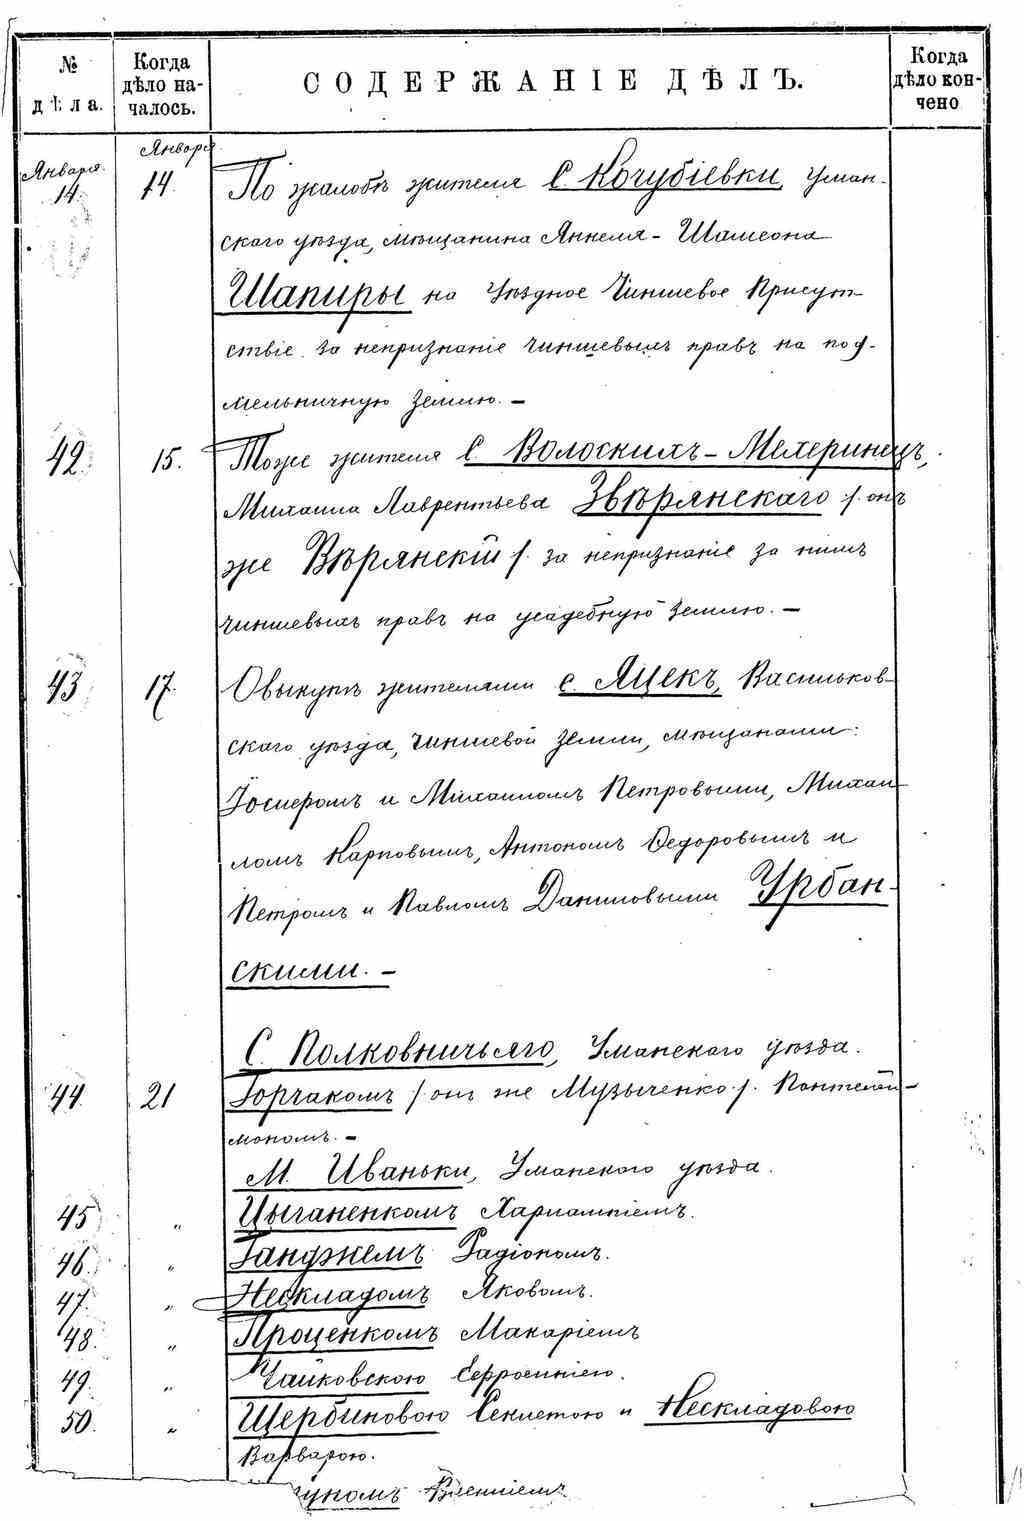 № дѣла.
Когда дѣло началось.
СОДЕРЖАНІЕ ДѢЛЪ.
Когда дѣло кончено
Января 14.
Января 14.
По жалобѣ жителя С. Кочубіевки, Уман-
скаго уѣзда, мѣщанина Янкеля-Шамсона
Шапиры на Уѣздное Чиншевое Присут-
ствіе за непризнаніе чиншевыхъ правъ на под-
мельничную землю.-
42. 15. Тоже жителя С. Волоскихъ-Мехеринецъ,
Михаила Лаврентьева Звѣрянскаго /:онъ
же Вѣрянскій/: за непризнаніе за нимъ
чиншевыхъ правъ на усадебную землю.-
43 17. О выкупѣ жителями с. Яцекъ, Васильков-
скаго уѣзда, чиншевой земли, мѣщанами:
Іосифомъ и Михаиломъ Петровыми, Михаи-
ломъ Карповымъ, Антономъ Федоровымъ и
Петромъ и Павломъ Даниловыми Урбан-
скими.-
С. Полковничьяго, Уманскаго уѣзда.
44. 21 Горчакомъ /:онъ же Музыченко:/ Пантелей-
мономъ.-
М. Иваньки, Уманскаго уѣзда.
45 " Цыганенкомъ Харлампіемъ.
46. " Ганджемъ Радіономъ.
47. " Нескладомъ Яковомъ.
48. " Проценкомъ Макаріемъ
49. " Чайковскою Ефросиніею.
50. " Щербиновою Секлетою и Нескладовою
Варварою.